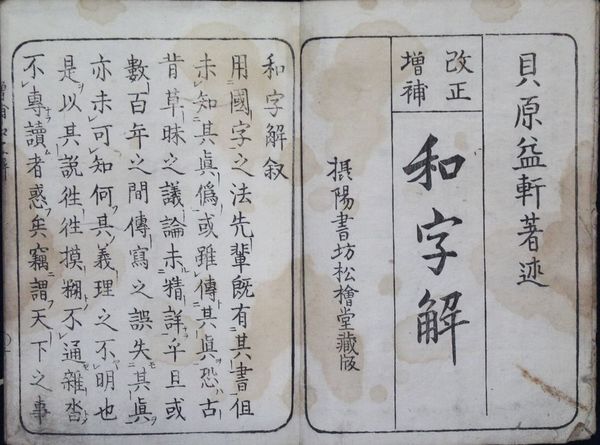 貝原益軒著述
改正
増補
和字解
摂陽書坊松檜堂蔵版
和字解叙
用國字之法先輩既有其書但
未知其眞偽或雖傳其眞恐古
昔草昧之議論未精詳乎且或
數百年之間傳寫之誤失其眞
亦未可知何其義理之不明也
是以其説徃徃摸糊不通雜沓
不專讀者惑矣竊謂天下之事